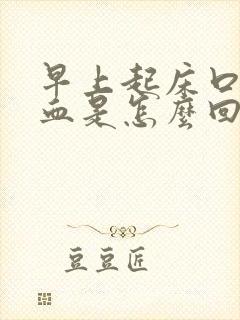 早上起床口
血是怎麼回
豆豆匠